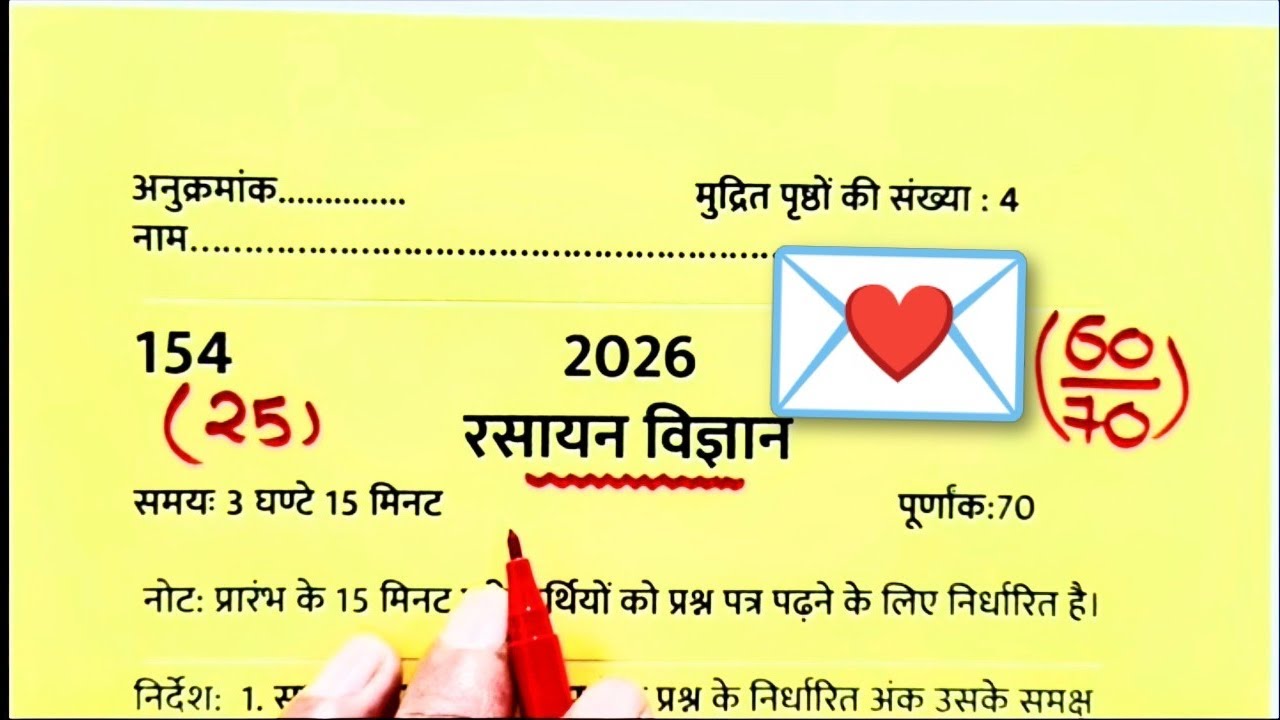 अनुक्रमांक..............
मुद्रित पृष्ठों की संख्या : 4
नाम............................................................
154
2026
(25)
(60/70)
रसायन विज्ञान
समयः 3 घण्टे 15 मिनट
पूर्णांक:70
नोट: प्रारंभ के 15 मिनट को प्रश्न पत्र पढ़ने के लिए निर्धारित है।
निर्देश: 1. प्रश्न के निर्धारित अंक उसके समक्ष